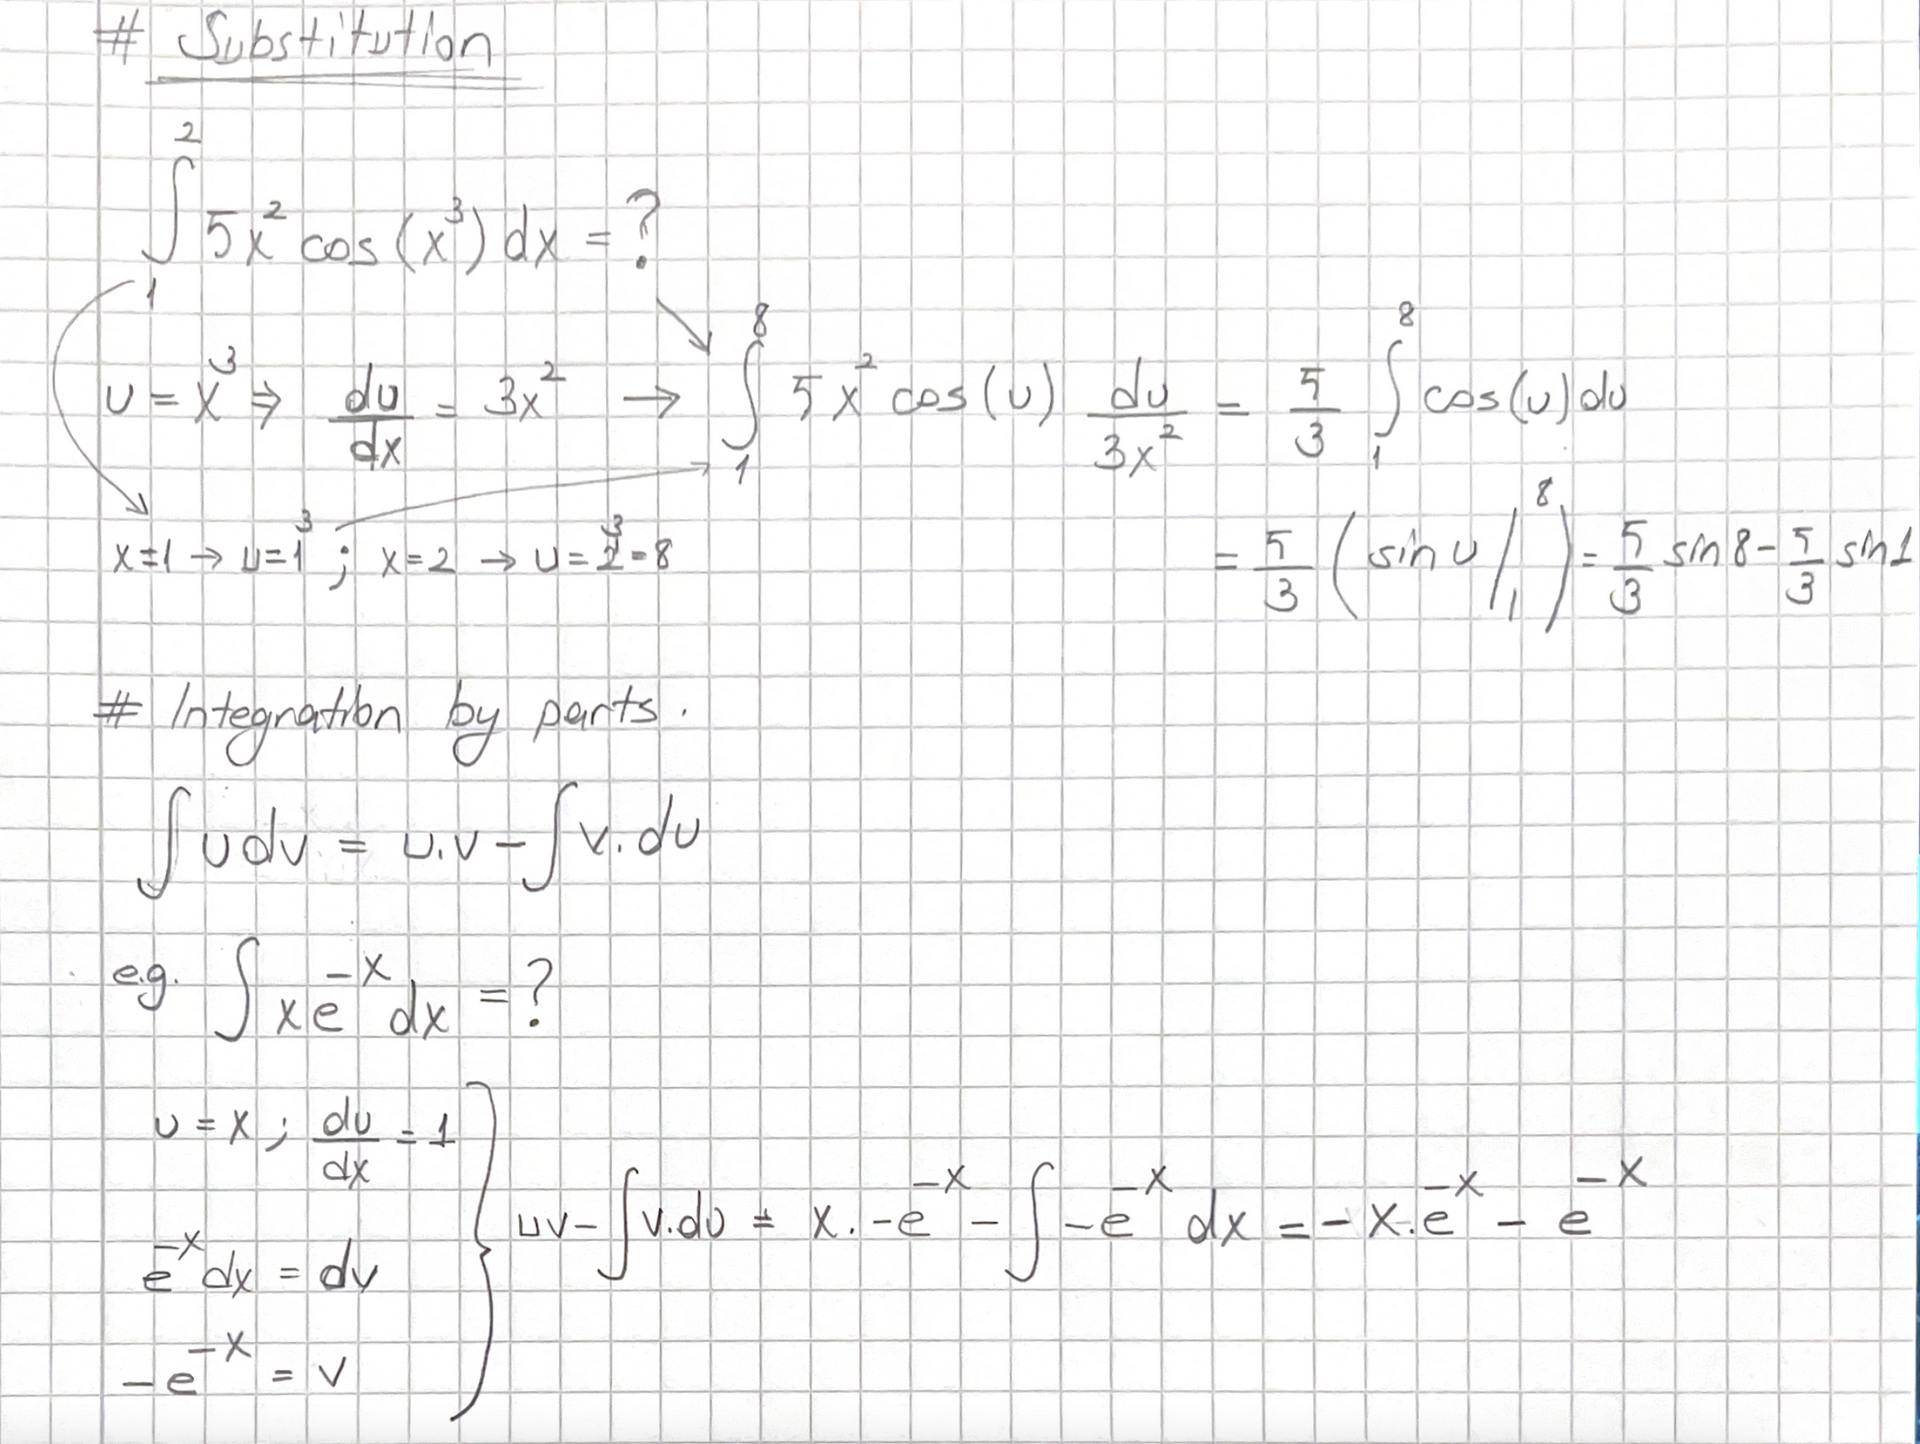 # Substitution
∫₁² 5x² cos(x³) dx = ?
u = x³ ⇒ du/dx = 3x² → ∫₁⁸ 5x² cos(u) du/3x² = 5/3 ∫₁⁸ cos(u) du
x=1 → u=1³ ; x=2 → u=2³=8
= 5/3 (sin u /₁⁸) = 5/3 sin 8 - 5/3 sin 1
# Integration by parts.
∫ u dv = u.v - ∫ v. du
e.g. ∫ x e^(-x) dx = ?
u = x ; du/dx = 1
e^(-x) dx = dv
-e^(-x) = v
uv - ∫ v.du = x. -e^(-x) - ∫ -e^(-x) dx = -x.e^(-x) - e^(-x)